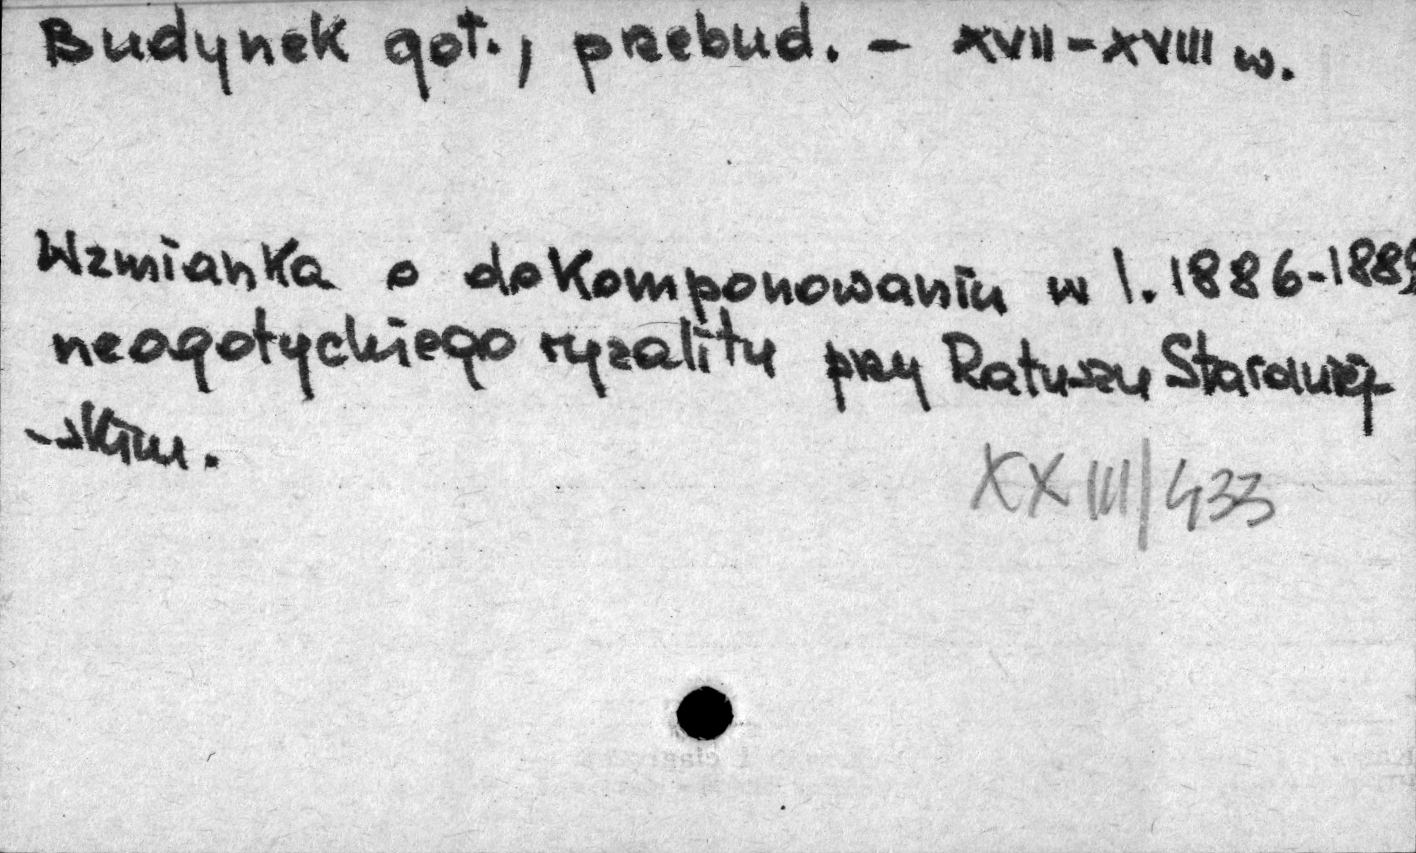 Budynek got., przebud. - XVII-XVIII w.
Wzmianka o dokomponowaniu w l. 1886-1889
neogotyckiego ryzalitu przy Ratuszu Staromiej-
-skim.
XXIII/433